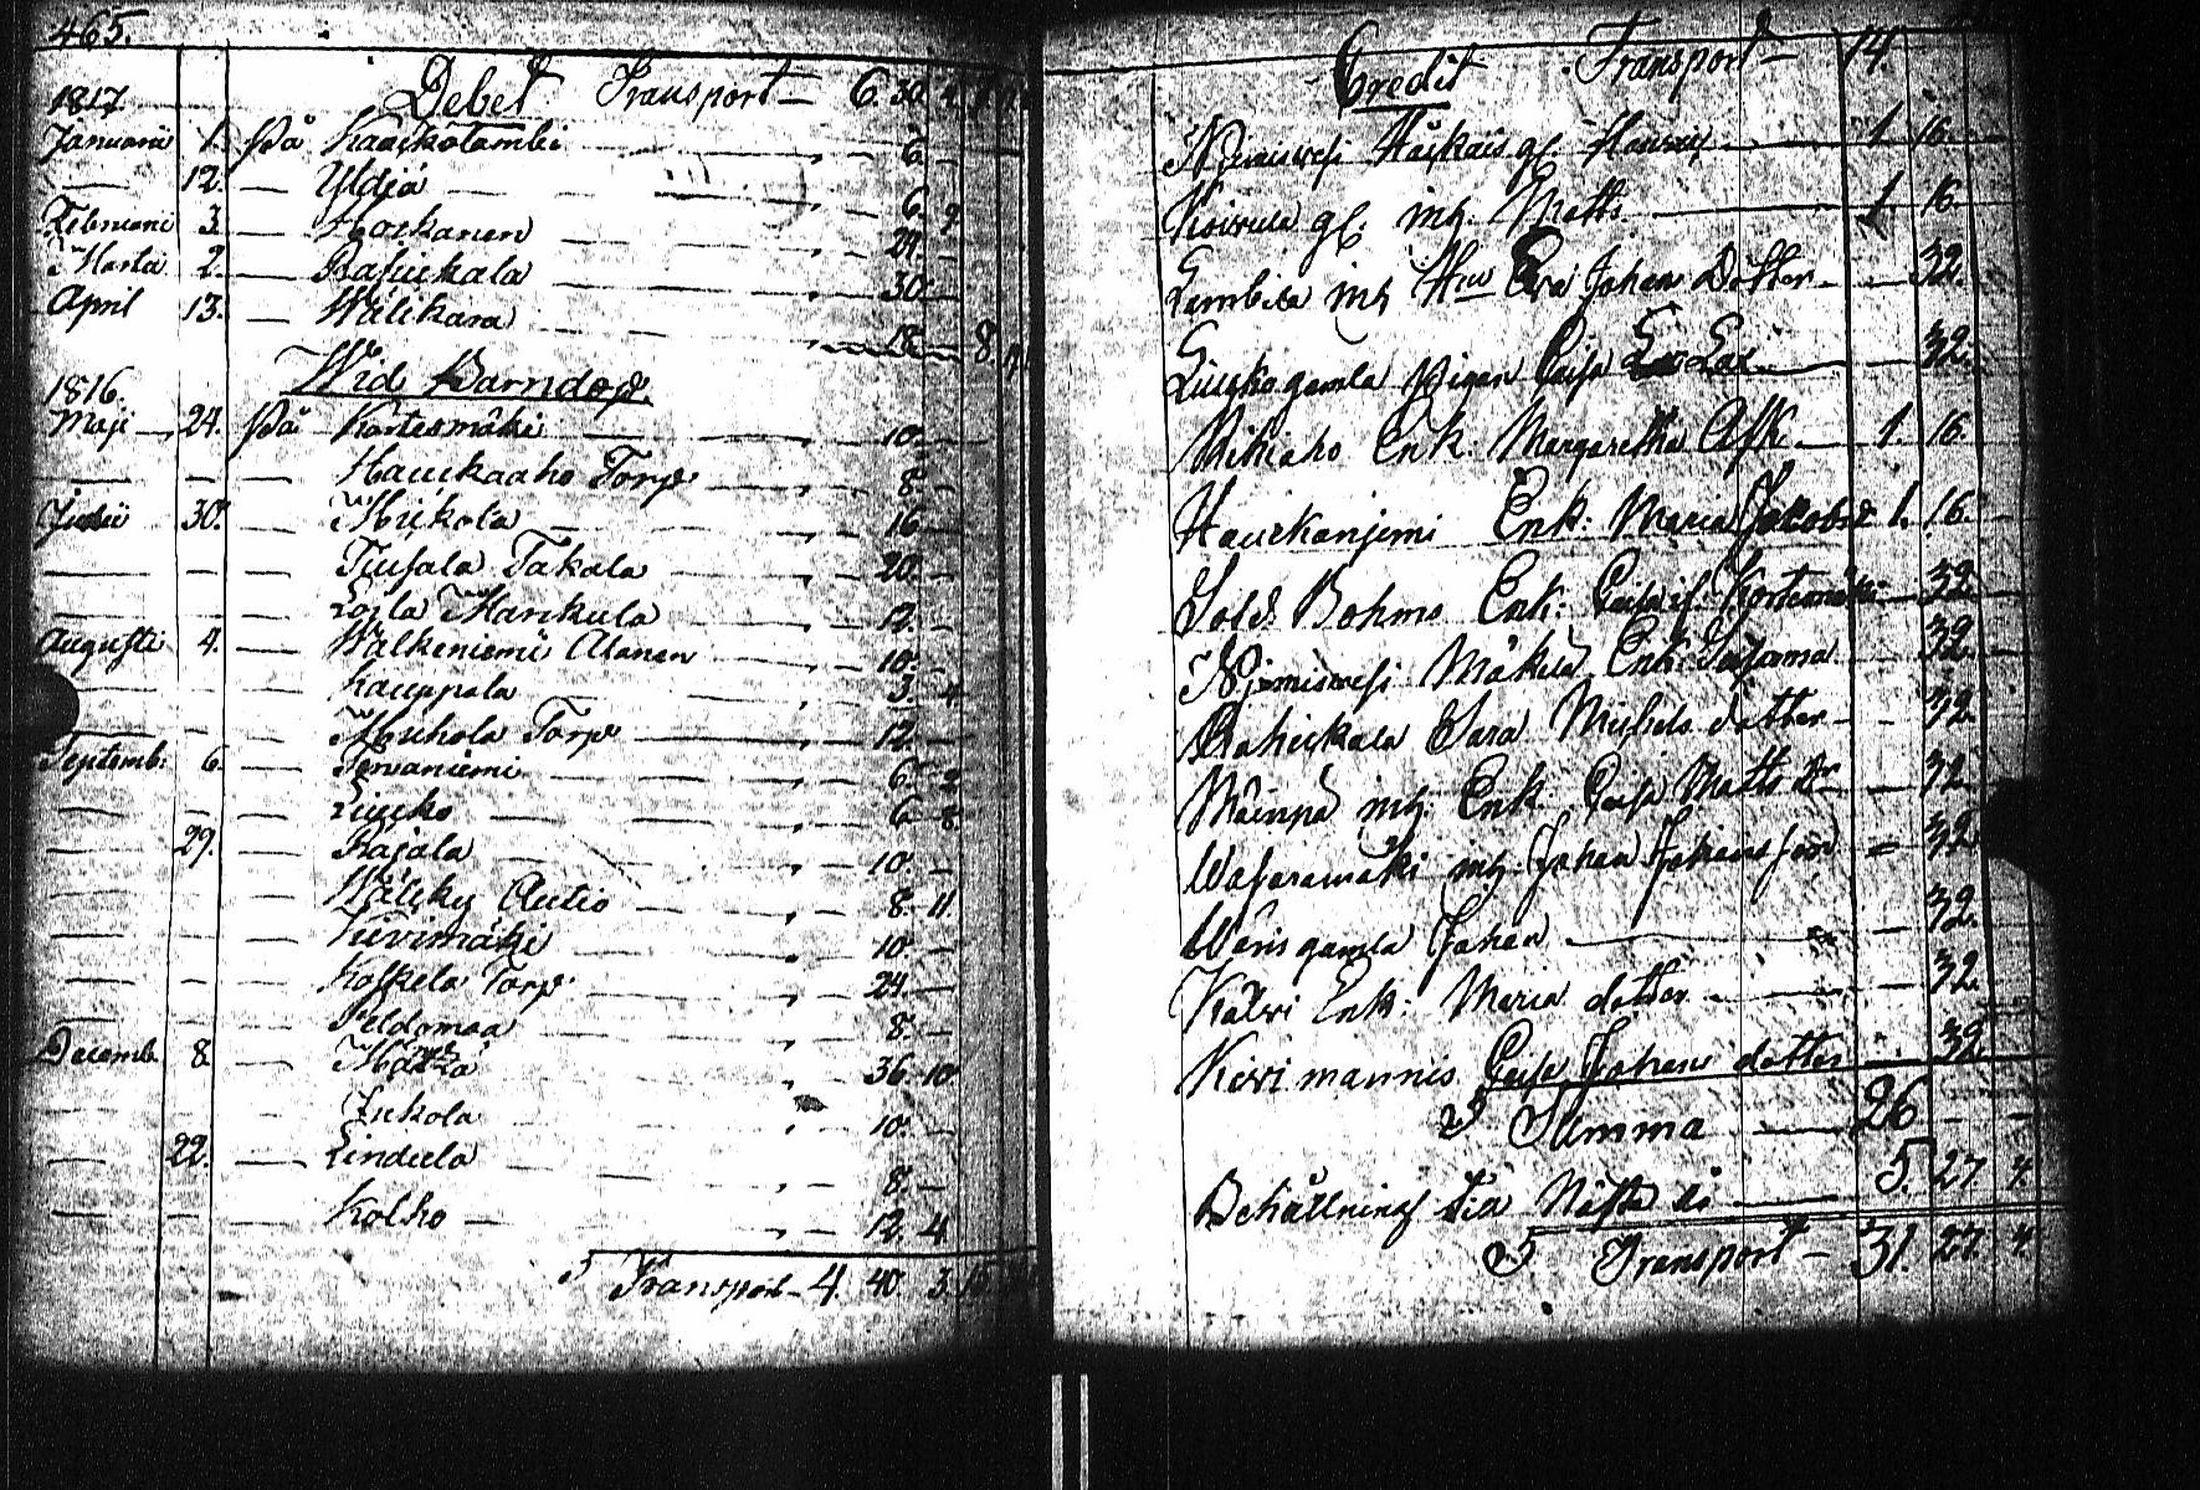 465.
Debet Transport — 6. 30. 4.
1817
Januarii 1. På Kaackotambi — " — 6. —
— 12. — Yldjä — " — 6. 9
Februarii 3. — Hoskanen — 24. —
Marta 2. — Bahukala — " — 30. —
April 13. — Wälikara — " — 18. — 8.
Wid Barndop.
1816.
Maji — 24. På Kortesmäki — " — 10. —
— — — Hauckaaho Torp — " — 8. —
30. — Mickola — " — 16 —
— — — Tiusala Takala — " — 20. —
— — — Loila Mankula — " — 12. —
Augusti 4. — Walkeniemi Alanen — " — 10. —
— — — Kauppala — " — 3. 4
— — — Muhola Torp — " — 12. —
Septemb: 6. — Tervaniemi — " — 6. 2
— — — Liucko — " — 6 8.
— 29. — Rajala — " — 10. —
— — — Wäliky Autio — " — 8. 11.
— — — Kivimäki — " — 10 —
— — — Koskela Torp — " — 24. —
— — — Peldomaa — " — 8. —
Decemb. 8. — " — 36. 10
Jukola — " — 10. —
— 22. — Lindela — " — 8. —
— — — Kolho — " — 12. 4
Transport — 4. 40. 3.
Credit Transport — 14.
gl. — 1. 16.
Koivula gl. mh. Matts — 1. 16.
Lambila mh Eva Johans Dotter — — 32.
Liucko gamla Pigan Caisa — 32.
Rihiaho Enk. Margaretha — 1. 16.
Hauckanjemi Enk: Maria Jakobsd. 1. 16.
Sold. Bohms Enk: Caisa Kortesmäki — 32.
Njemiswesi Mäkelä Enk. Susanna — 32.
Bahukala Sara Michels dotter — - 32.
Mäinpä mh: Enk: Caisa Matts Dr — — 32.
Wasaramäki mh. Johan Johansson = 32
Wäris gamla Johan — — 32.
Kälwi Enk: Maria dotter — — 32.
Kivimannis Caisa Johans dotter — 32.
Summa — 26 — —
Behållning till Nästa år — 5. 27. 4.
Transport — 31. 27. 4.